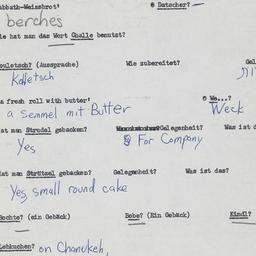 abbath-Weissbrot' @ Datscher? -
berches
ie hat man das Wort Challe benutzt?
ouletsch? (Aussprache) Wie zubereitet? Gel
Kolletsch
a fresh roll with butter' @ We...?
a semmel mit Butter Weck
at man Strudel gebacken? Gelegenheit? Was ist d
Yes For Company
at man Strützel gebacken? Gelegenheit? Was ist das?
Yes, small round cake
Bochte? (ein Gebäck) Bobe? (Ein Gebäck) Kindl?
Lebkuchen? on Chanukeh,